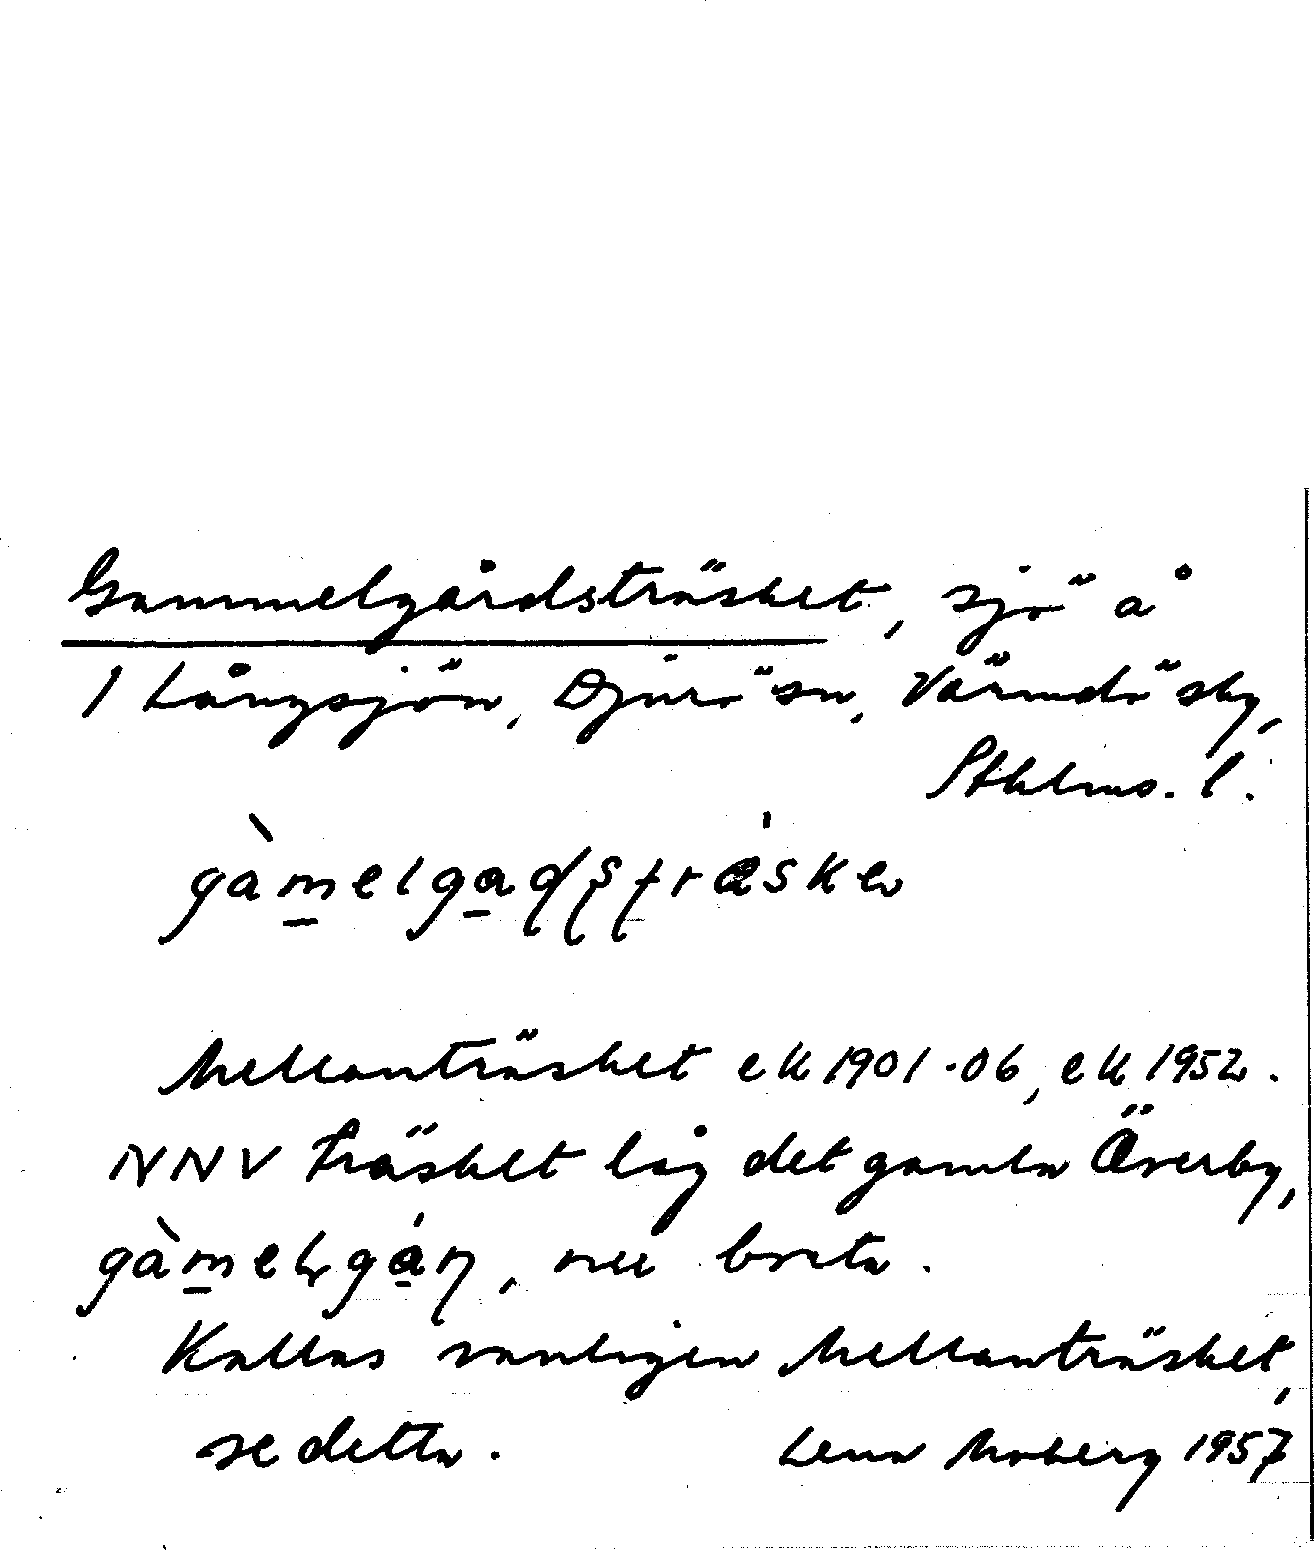 Gammelgårdsträsket, sjö å
1 Långsjön, Djurö sn, Värmdö sky,
Sthlms. l.
gàmelgaɖʂʈrǽskə
Mellanträsket ek 1901-06, ek 1952.
NNV träsket låg det gamla Överby,
gàmeləgáɳ, nu borta.
Kallas vanligen Mellanträsket,
se detta. Lena Moberg 1957